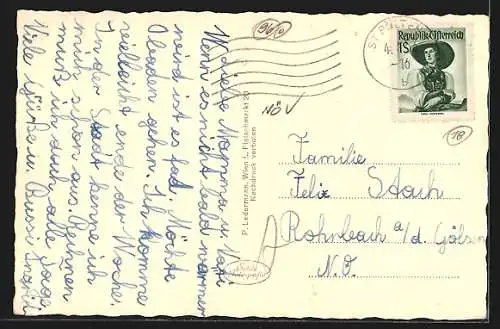 Liebe Mama u. Vati
Wenn es nicht bald warmer
wird ist es fad. Möchte
baden gehen. Ich komme
vielleicht ende der Woche.
In der Stadt kenne ich
mich schon aus. Rechnen
muß ich doch alle Tage
Viele Grüße u. Bussi
P. Ledermann, Wien I., Fleischmarkt 20
Nachdruck verboten
NÖ V
ST. PÖLTEN
Republik Österreich
1S
16
Familie
Felix Stach
Rohrbach a/d. Gölsen
N.Ö.